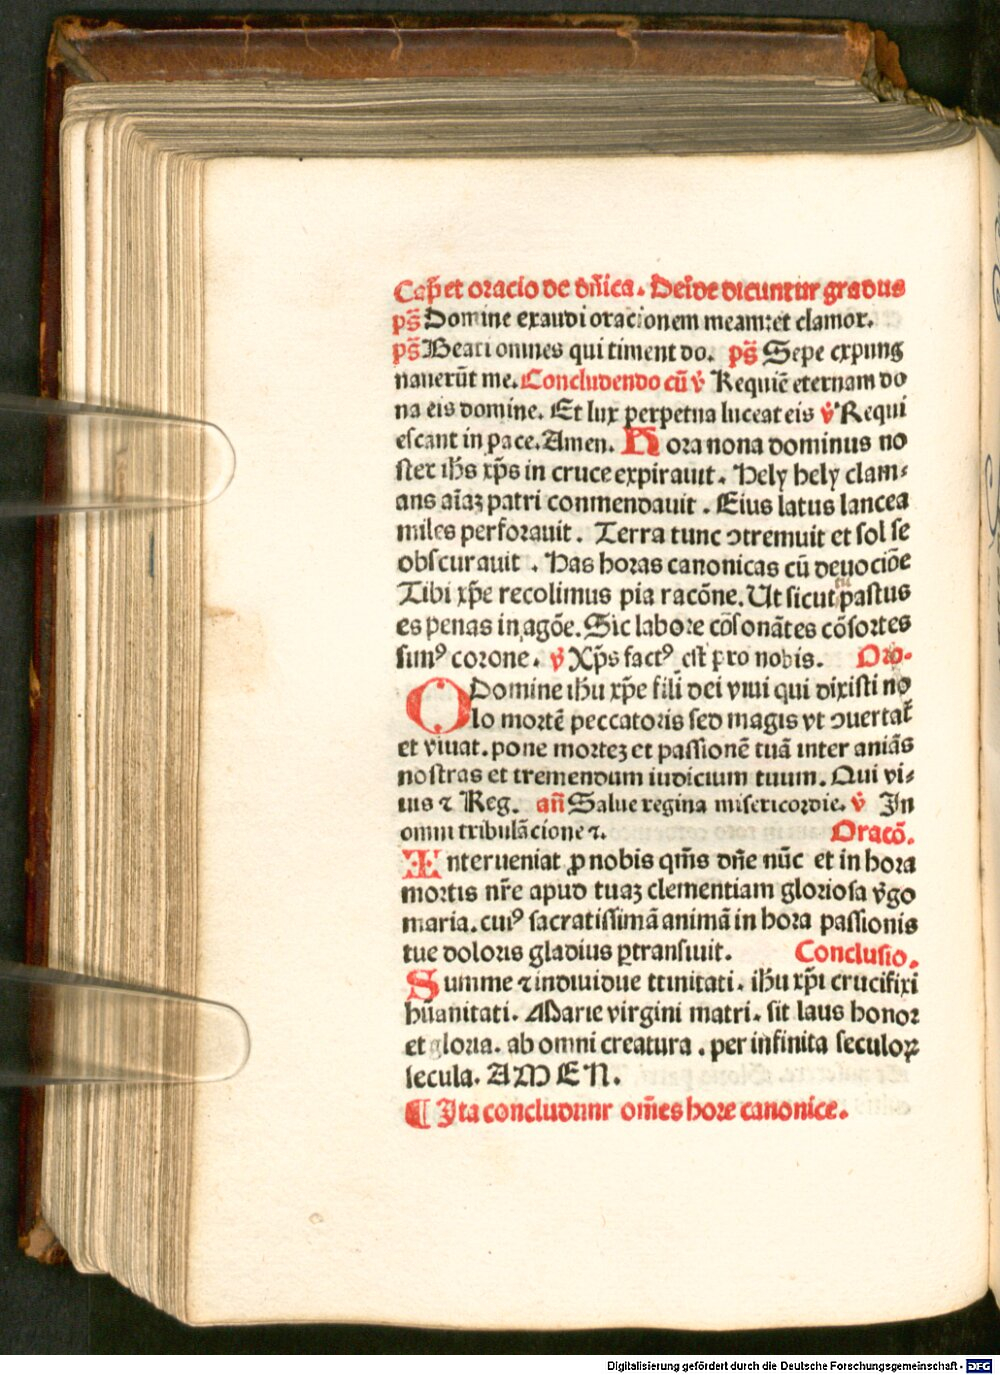 Cap̄ et oracio de dn̄ica. Dein̄de dicuntur gradus
ps̄ Domine exaudi orationem meam: et clamor.
ps̄ Beati omnes qui timent do. ps̄ Sepe expung
nauerūt me. Concludendo cū v̄ Requiē eternam do
na eis domine. Et lux perpetua luceat eis v̄ Requi
escant in pace. Amen. Hora nona dominus no
ster ih̄s xp̄s in cruce expirauit. Hely hely clam⸗
ans aīaꝫ patri conmendauit. Eius latus lancea
miles perforauit. Terra tunc ↄtremuit et sol se
obscurauit. Has horas canonicas cū deuociōe
Tibi xp̄e recolimus pia racōne. Ut sicut tu passus
es penas in agōe. Sic labore cōsonātes cōsortes
simꝰ corone. v̄ Xp̄s factꝰ est pro nobis. Oro.
O Domine ihū xp̄e fili dei viui qui dixisti no
lo mortē peccatoris sed magis vt ↄuertat̄
et viuat. pone morteꝫ et passionē tuā inter aniās
nostras et tremendum iudicium tuum. Qui vi⸗
uis ⁊ Reg. an̄ Salue regina misericordie. v̄ In
omni tribulācione ⁊. Oracō.
Interueniat ꝓ nobis qm̄s dn̄e nūc et in hora
mortis nr̄e apud tuaꝫ clementiam gloriosa v̄go
maria. cuiꝰ sacratissimā animā in hora passionis
tue doloris gladius ꝑtransiuit. Conclusio.
Summe ⁊ indiuidue trinitati. ihū xp̄i crucifixi
hūanitati. Marie virgini matri. sit laus honor
et gloria. ab omni creatura. per infinita seculoꝝ
secula. AMEN.
¶ Ita concludunr om̄es hore canonice.
Digitalisierung gefördert durch die Deutsche Forschungsgemeinschaft - DFG